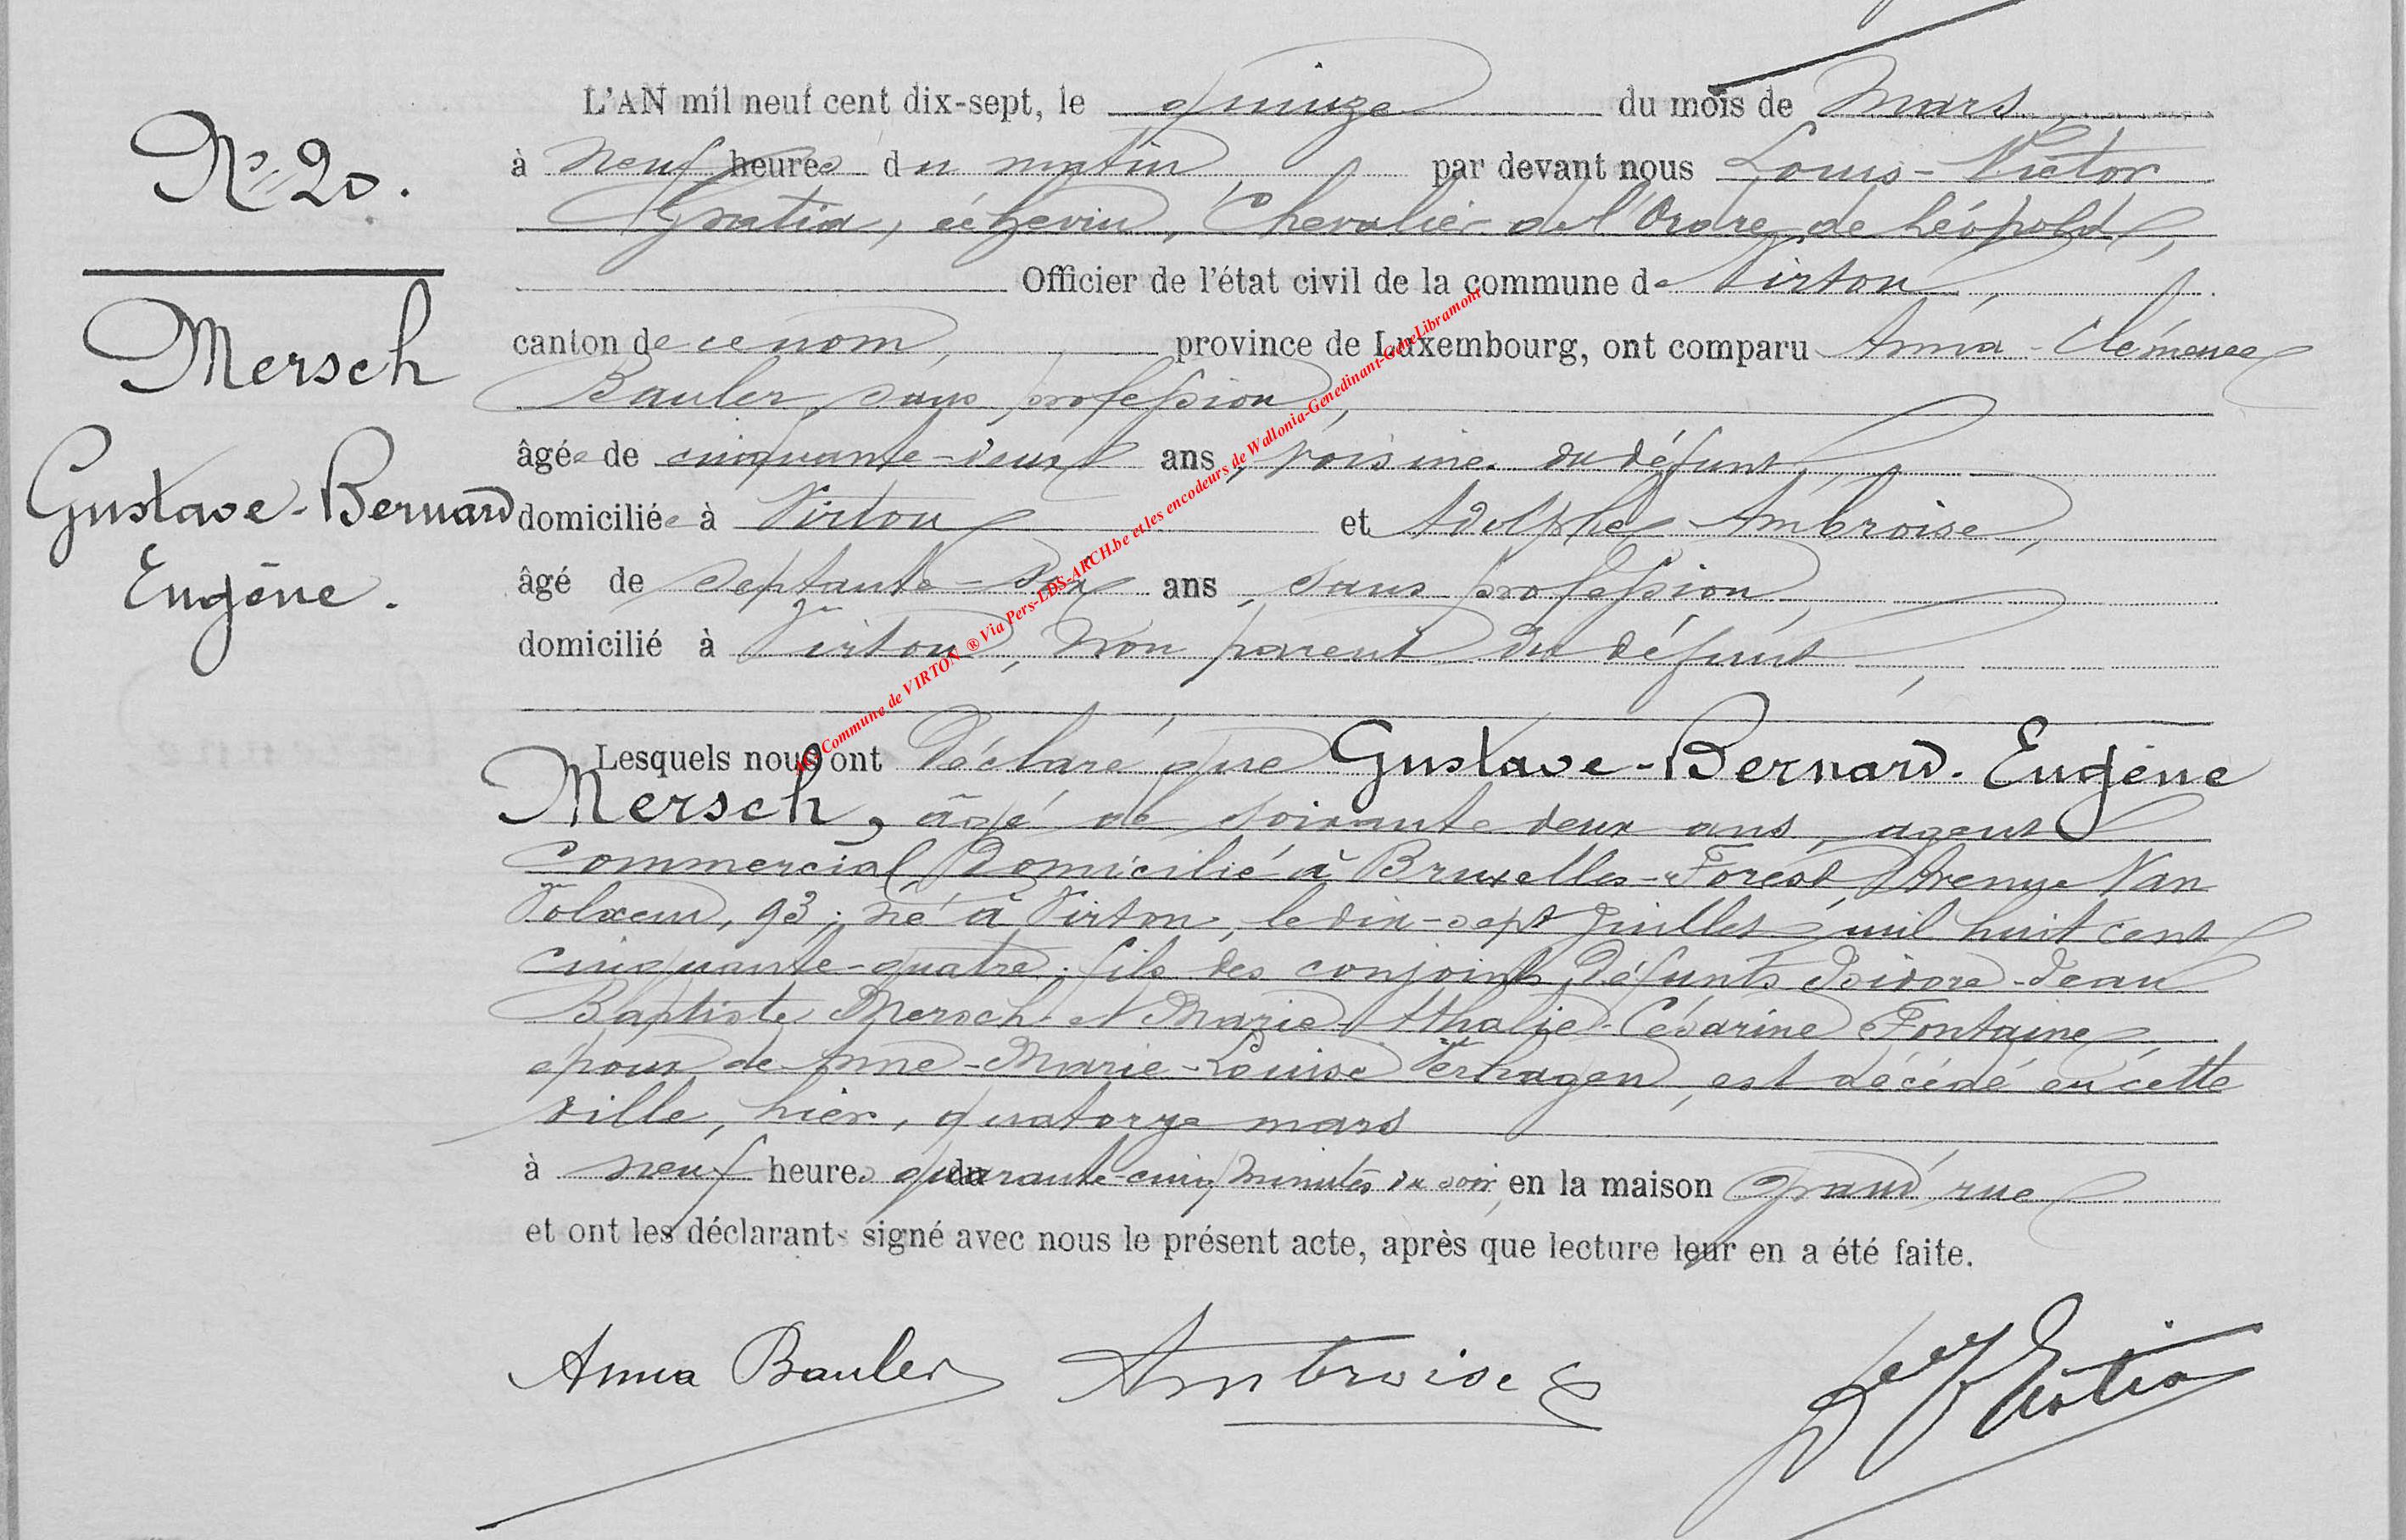 L'AN mil neuf cent dix-sept, le quinze du mois de Mars,
N° 20.
à neuf heures du matin, par devant nous Louis-Victor
Gratia, échevin, Chevalier de l'Ordre de Léopold,
Officier de l'état civil de la commune de Virton,
Mersch
canton de ce nom, province de Luxembourg, ont comparu Anna-Clémence
Bauler, sans profession,
âgée de cinquante-deux ans, voisine du défunt,
Gustave-Bernard
domiciliée à Virton et Adolphe Ambroise,
Eugène.
âgé de septante-six ans, sans profession,
domicilié à Virton, non parent du défunt,
AC Commune de VIRTON ® Via Pers-LDS-ARCH.be et les encodeurs de Wallonia-Genedinant-GeneLibramont
Lesquels nous ont déclaré que Gustave-Bernard-Eugène
Mersch, âgé de soixante deux ans, agent
commercial domicilié à Bruxelles-Forest, Avenue Van
Volxem, 93; né à Virton, le dix-sept Juillet mil huit cent
cinquante-quatre; fils des conjoints défunts Isidore-Jean
Baptiste Mersch et Marie-Athalie-Césarine Fontaine,
époux de Anne-Marie-Louise Verhagen, est décédé en cette
ville, hier, quatorze mars
à neuf heures du quarante-cinq minutes du soir, en la maison Grand'rue
et ont les déclarants signé avec nous le présent acte, après que lecture leur en a été faite.
Anna Bauler Ambroise Gratia